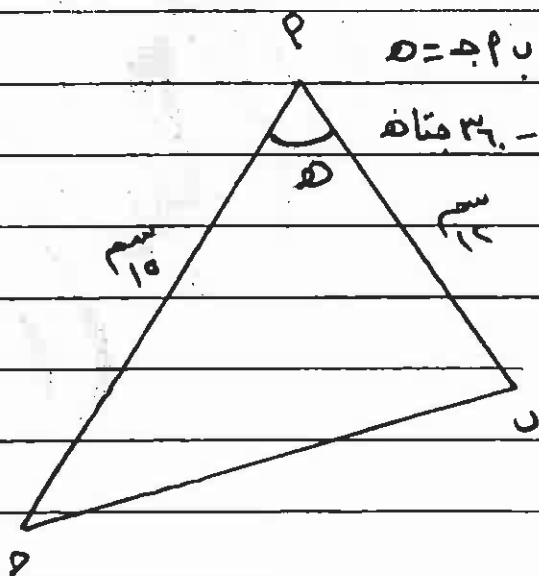 أ
ب أ ج = ه
- ٣٦٠ جتاه
ه
١٥ سم
١٢ سم
ب
ج